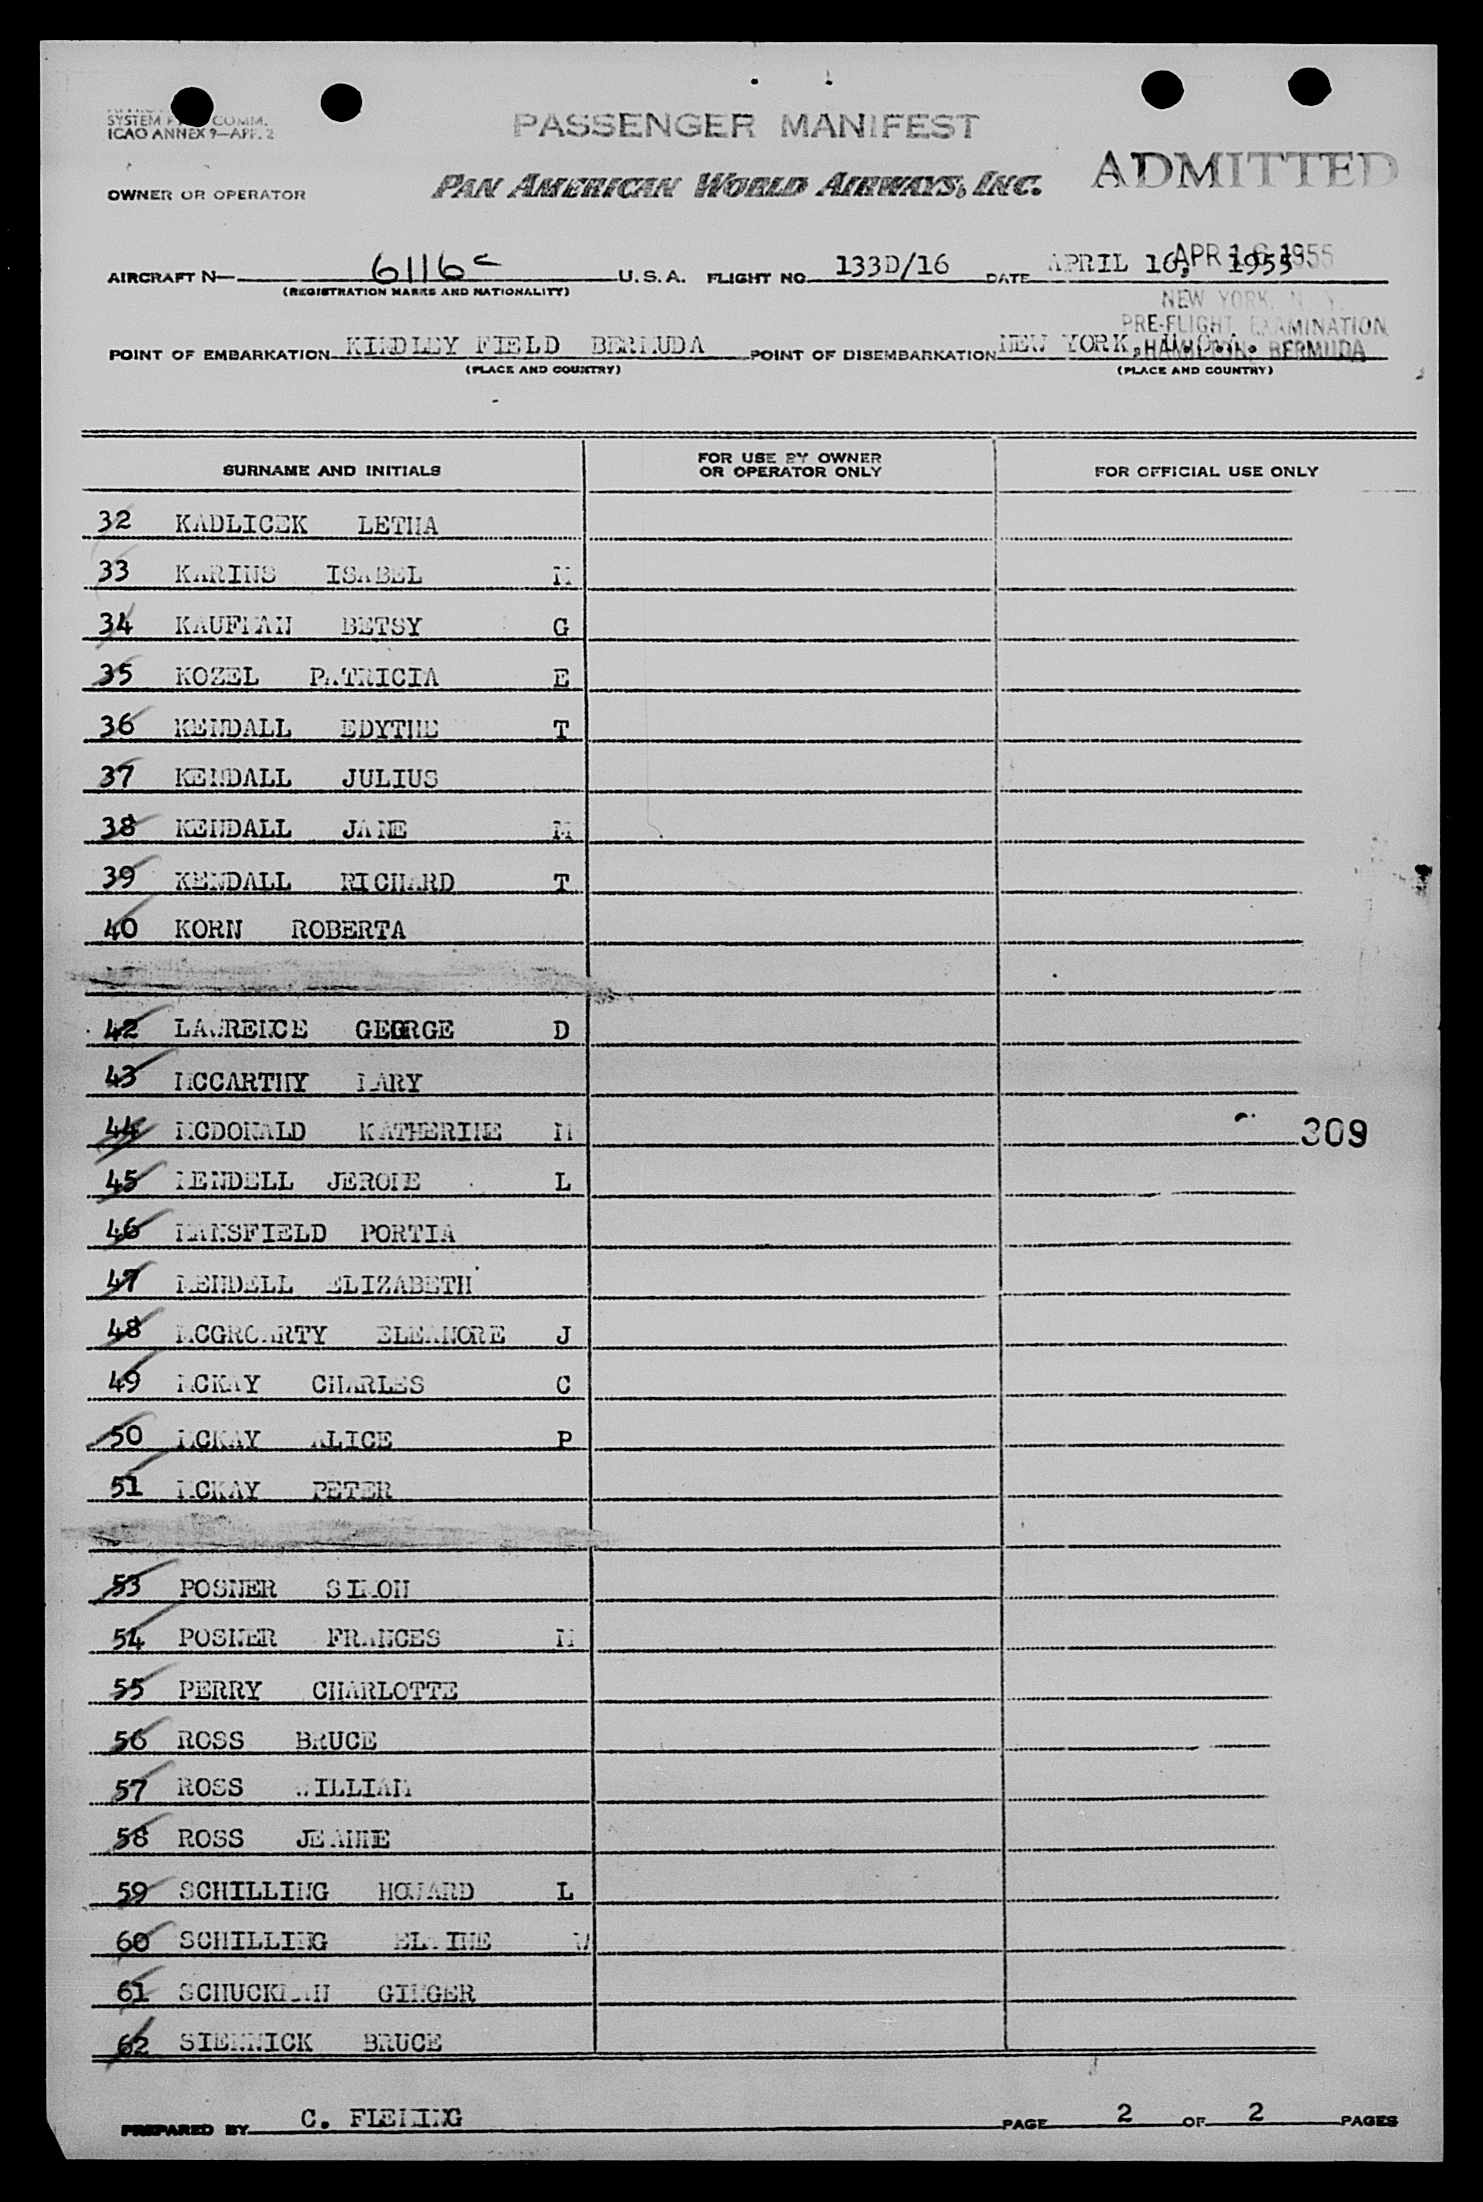 SYSTEM COMM.
ICAO ANNEX 9—APP. 2
PASSENGER MANIFEST
ADMITTED
OWNER OR OPERATOR PAN AMERICAN WORLD AIRWAYS, INC.
AIRCRAFT N— 6116c U.S.A. FLIGHT NO. 133D/16 DATE APRIL 16, 1955
APR 16 1955
(REGISTRATION MARKS AND NATIONALITY)
NEW YORK, N. Y.
PRE-FLIGHT EXAMINATION
HAMILTON, BERMUDA
POINT OF EMBARKATION KINDLEY FIELD BERMUDA POINT OF DISEMBARKATION NEW YORK,
(PLACE AND COUNTRY) (PLACE AND COUNTRY)
SURNAME AND INITIALS FOR USE BY OWNER OR OPERATOR ONLY FOR OFFICIAL USE ONLY
32 KADLICEK LETHA
33 KARINS ISABEL M
34 KAUFMAN BETSY G
35 KOZEL PATRICIA E
36 KENDALL EDYTHE T
37 KENDALL JULIUS
38 KENDALL JANE M
39 KENDALL RICHARD T
40 KORN ROBERTA
42 LAWRENCE GEORGE D
43 MCCARTHY MARY
44 MCDONALD KATHERINE M 309
45 MENDELL JEROME L
46 MANSFIELD PORTIA
47 MENDELL ELIZABETH
48 MCGROARTY ELEANORE J
49 MCKAY CHARLES C
50 MCKAY ALICE P
51 MCKAY PETER
53 POSNER SIMON
54 POSNER FRANCES M
55 PERRY CHARLOTTE
56 ROSS BRUCE
57 ROSS WILLIAM
58 ROSS JEANNE
59 SCHILLING HOWARD L
60 SCHILLING ELAINE W
61 SCHUCKMAN GINGER
62 SIENNICK BRUCE
PREPARED BY C. FLEMING PAGE 2 OF 2 PAGES